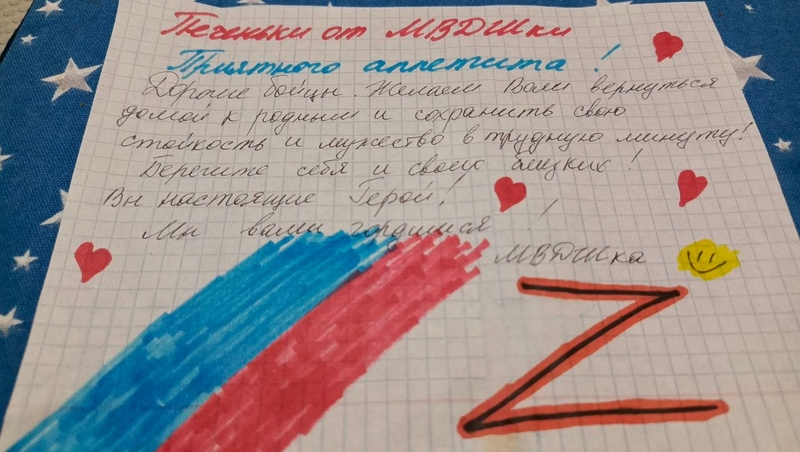 Печеньки от МВДШки
Приятного аппетита!
Дорогие бойцы. Желаем Вам вернуться
домой к родным и сохранить свою
стойкость и мужество в трудную минуту!
Берегите себя и своих близких!
Вы настоящие Герои!
Мы вами гордимся!
МВДШка
Z